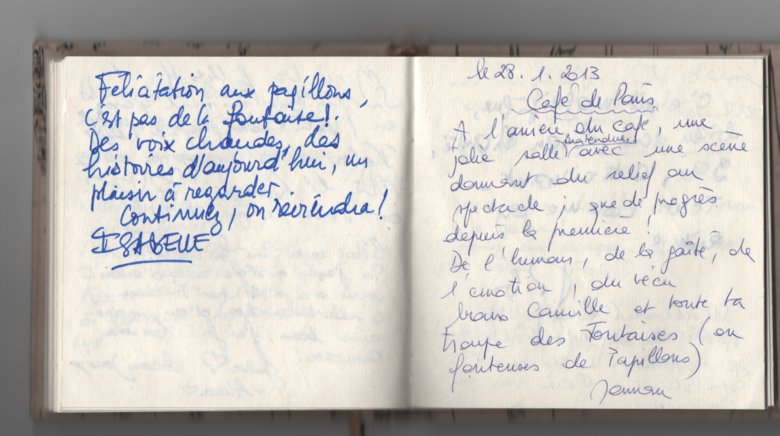 Félicitation aux papillons,
C'est pas de la fontaise!
Des voix chaudes, des
histoires d'aujourd'hui, un
plaisir à regarder.
Continuez, on reviendra!
ISABELLE
le 28.1.2013
Café de Paris
A l'arrière du café, une
jolie salle inattendue avec une scène
donnant du relief au
spectacle ; que de progrès
depuis la première !
De l'humour, de la gaîté, de
l'émotion, du vécu
bravo Camille et toute ta
troupe des Fontaises (ou
fonteuses de Papillons)